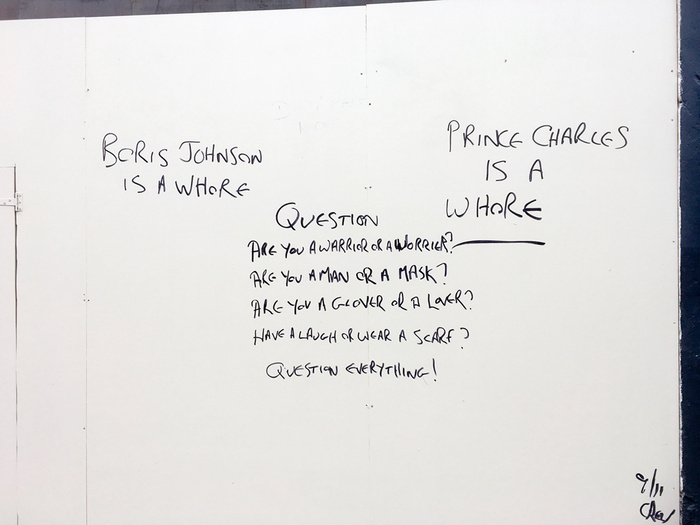 BORIS JOHNSON
IS A WHORE
PRINCE CHARLES
IS A
WHORE
QUESTION
ARE YOU A WARRIOR OR A WORRIER?
ARE YOU A MAN OR A MASK?
ARE YOU A GLOVER OR A LOVER?
HAVE A LAUGH OR WEAR A SCARF?
QUESTION EVERYTHING!
9/11